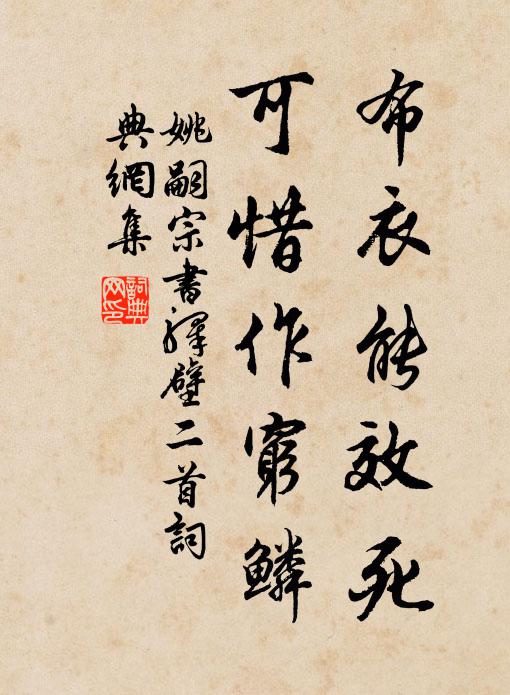 布衣能效死
可惜作窮鱗
姚嗣宗書驛壁二首詞
典網集
詞典網印